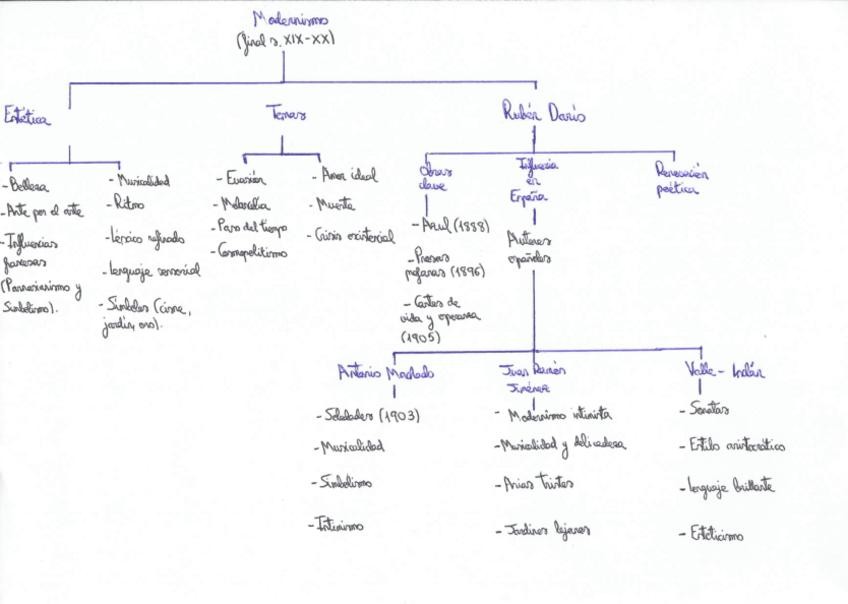 Modernismo
(final s. XIX-XX)
Estética
Temas
Rubén Darío
- Belleza
- Arte por el arte
- Influencias
francesas
(Parnasianismo y
Simbolismo).
- Musicalidad
- Ritmo
- Léxico refinado
- Lenguaje sensorial
- Símbolos (cisne,
jardín, oro).
- Evasión
- Melancolía
- Paso del tiempo
- Cosmopolitismo
- Amor ideal
- Muerte
- Crisis existencial
Obras
clave
- Azul (1888)
- Prosas
profanas (1896)
- Cantos de
vida y esperanza
(1905)
Influencia
en
España
Autores
españoles
Renovación
poética
Antonio Machado
- Soledades (1903)
- Musicalidad
- Simbolismo
- Intimismo
Juan Ramón
Jiménez
- Modernismo intimista
- Musicalidad y delicadeza
- Arias tristes
- Jardines lejanos
Valle-Inclán
- Sonatas
- Estilo aristocrático
- Lenguaje brillante
- Esteticismo